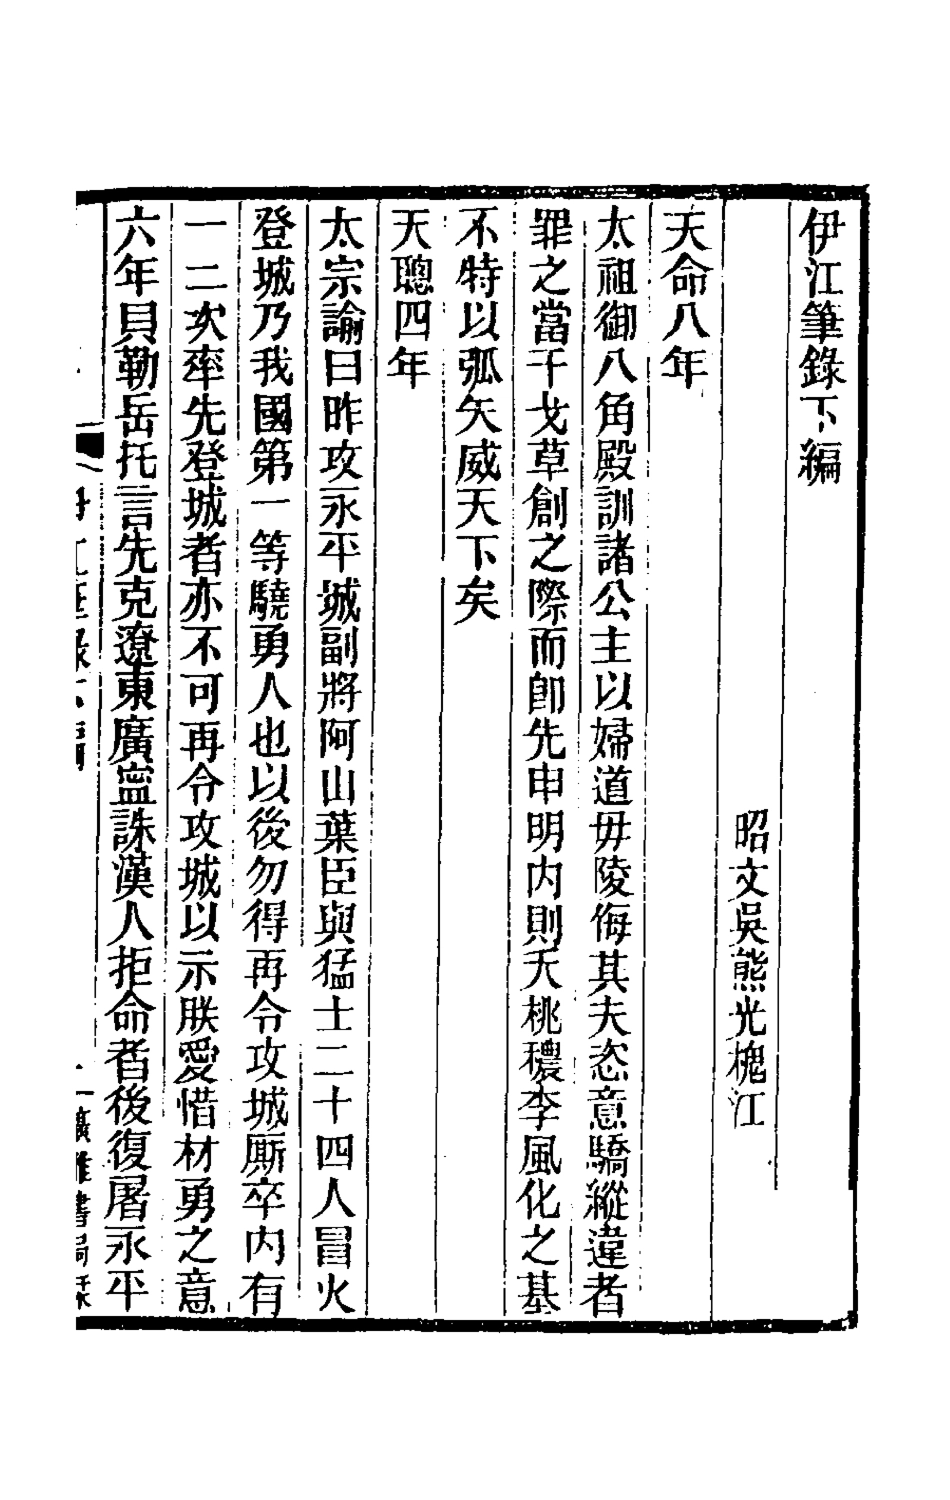 伊江筆錄下編
昭文吳熊光槐江
天命八年
太祖御八角殿訓諸公主以婦道毋陵侮其夫恣意驕縱違者
罪之當干戈草創之際而卽先申明內則夭桃穠李風化之基
不特以弧矢威天下矣
天聰四年
太宗諭曰昨攻永平城副將阿山葉臣與猛士二十四人冒火
登城乃我國第一等驍勇人也以後勿得再令攻城厮卒內有
一二次率先登城者亦不可再令攻城以示朕愛惜材勇之意
六年貝勒岳托言先克遼東廣寍誅漢人拒命者後復屠永平